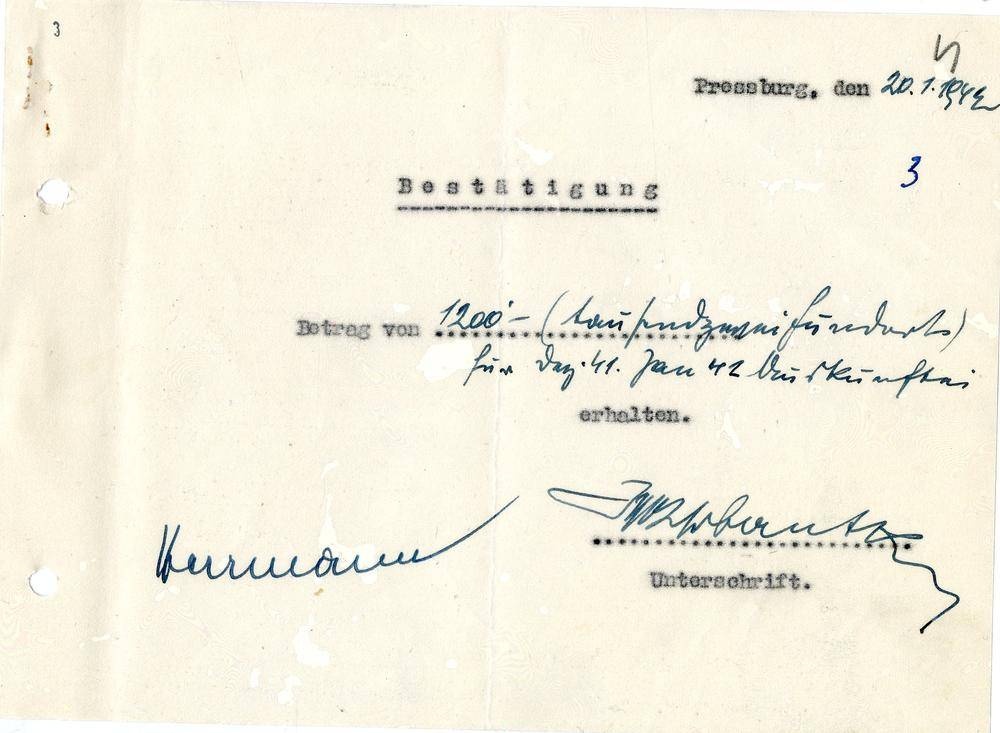 3
Pressburg, den 20.1.1942
3
Bestätigung
Betrag von 1200.- (tausendzweihunderts)
für Dez. 41. Jan 42 Auskunftei
erhalten.
Herrmann
Unterschrift.